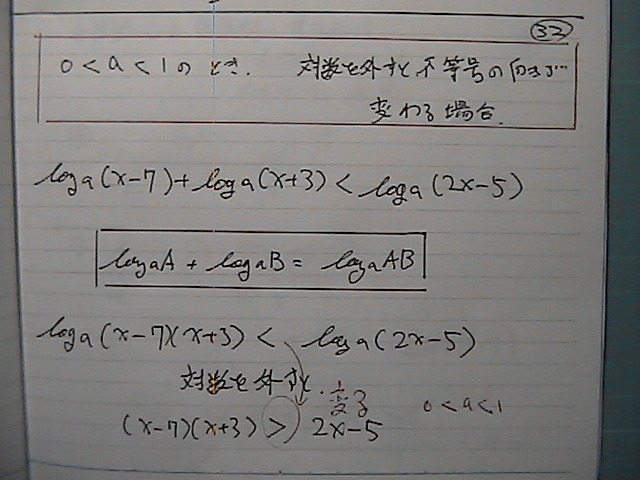 32
0 < a < 1 の とき. 対数を外すと不等号の向きが
変わる場合.
log a (x-7) + log a (x+3) < log a (2x-5)
log a A + log a B = log a AB
log a (x-7)(x+3) < log a (2x-5)
対数を外すと. 変る 0 < a < 1
(x-7)(x+3) > 2x-5